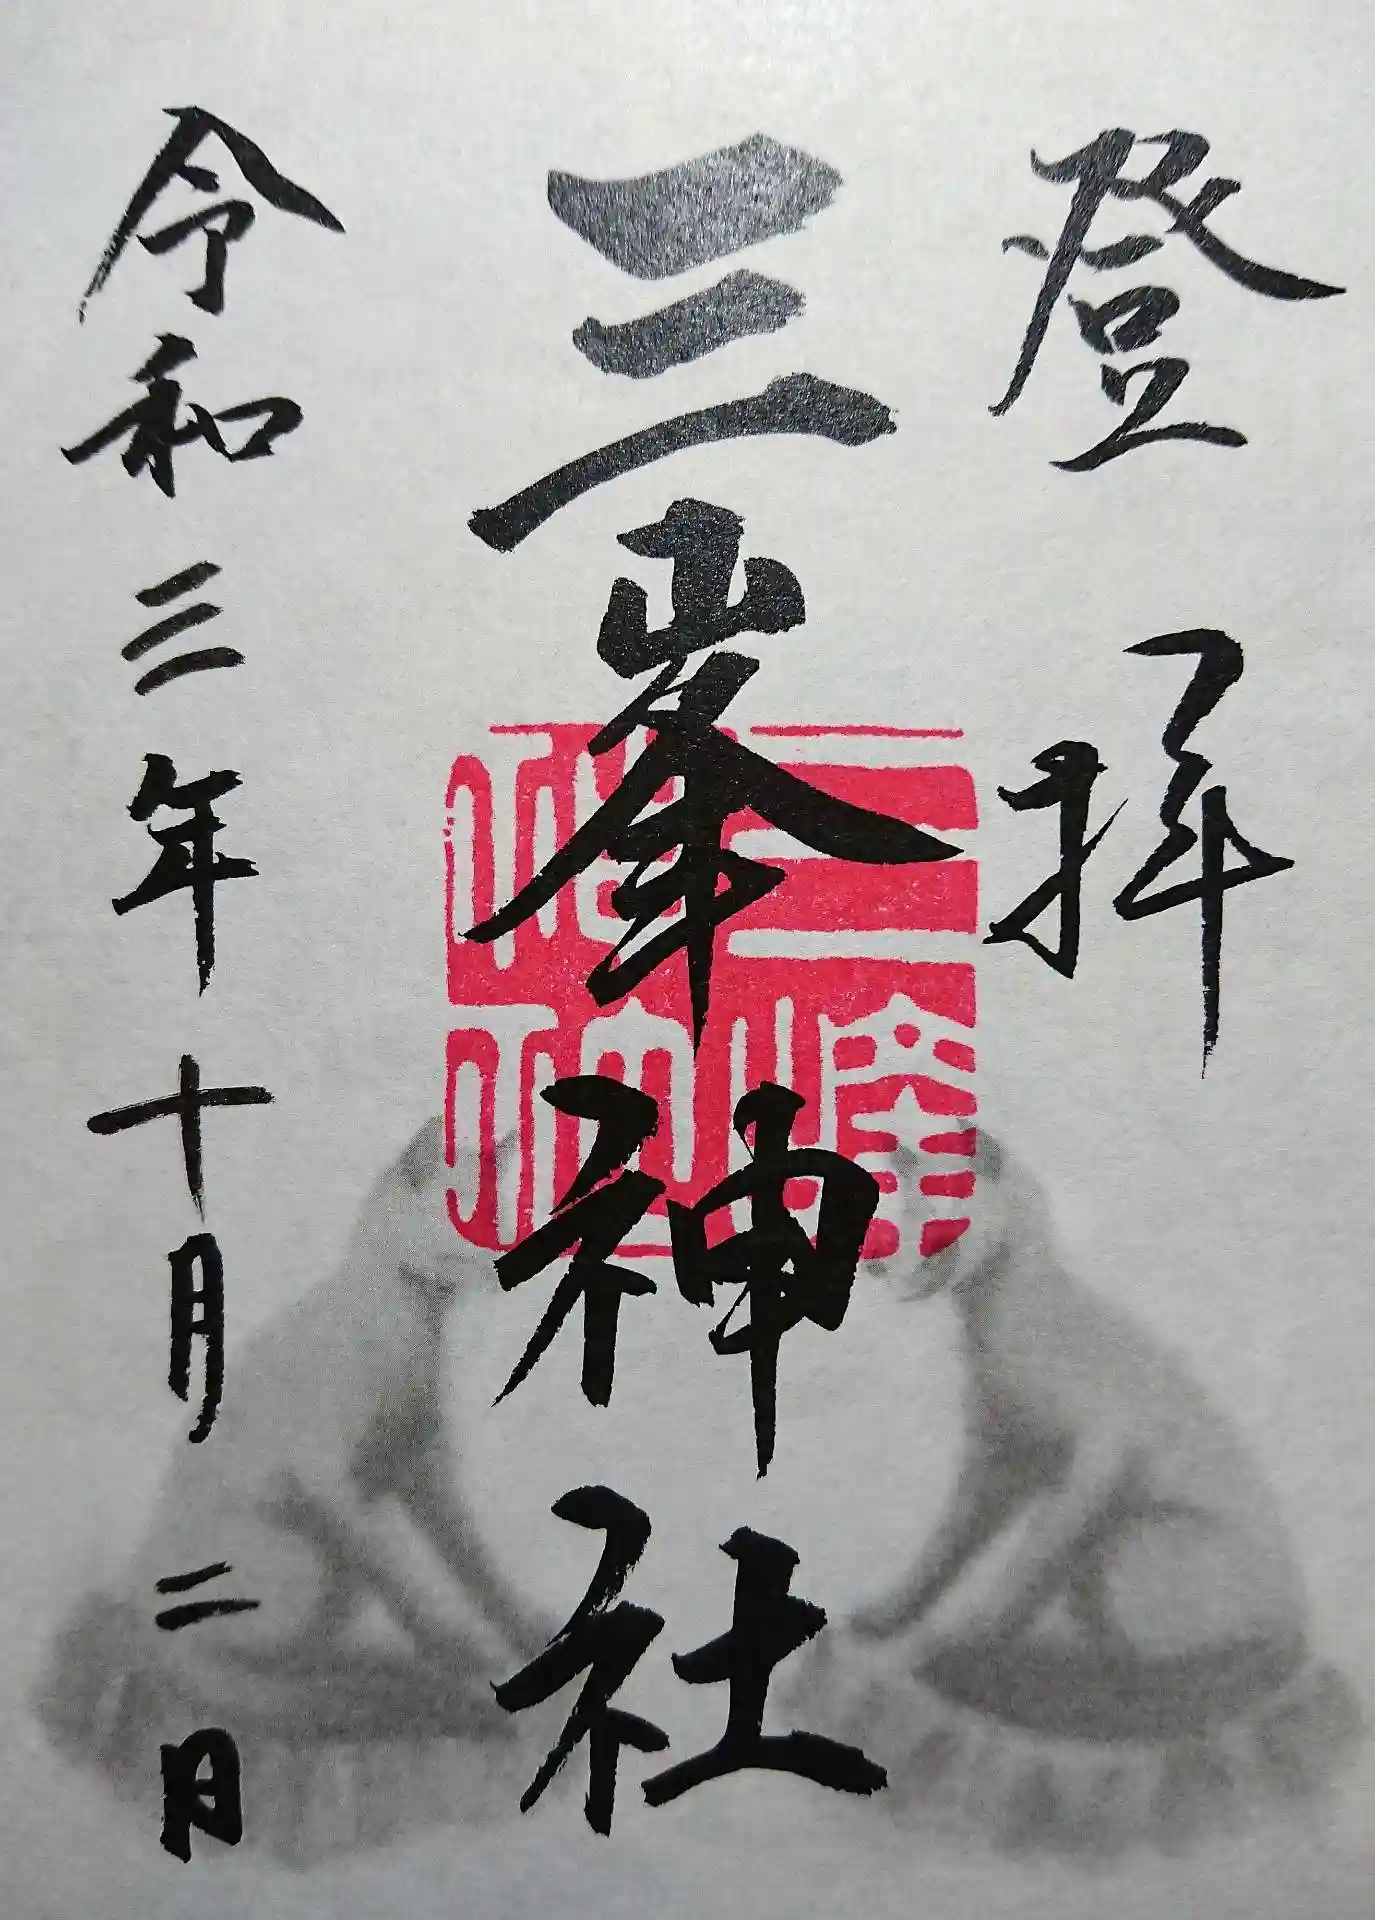 登拝
三峯神社
令和三年十月二日
三峰神社